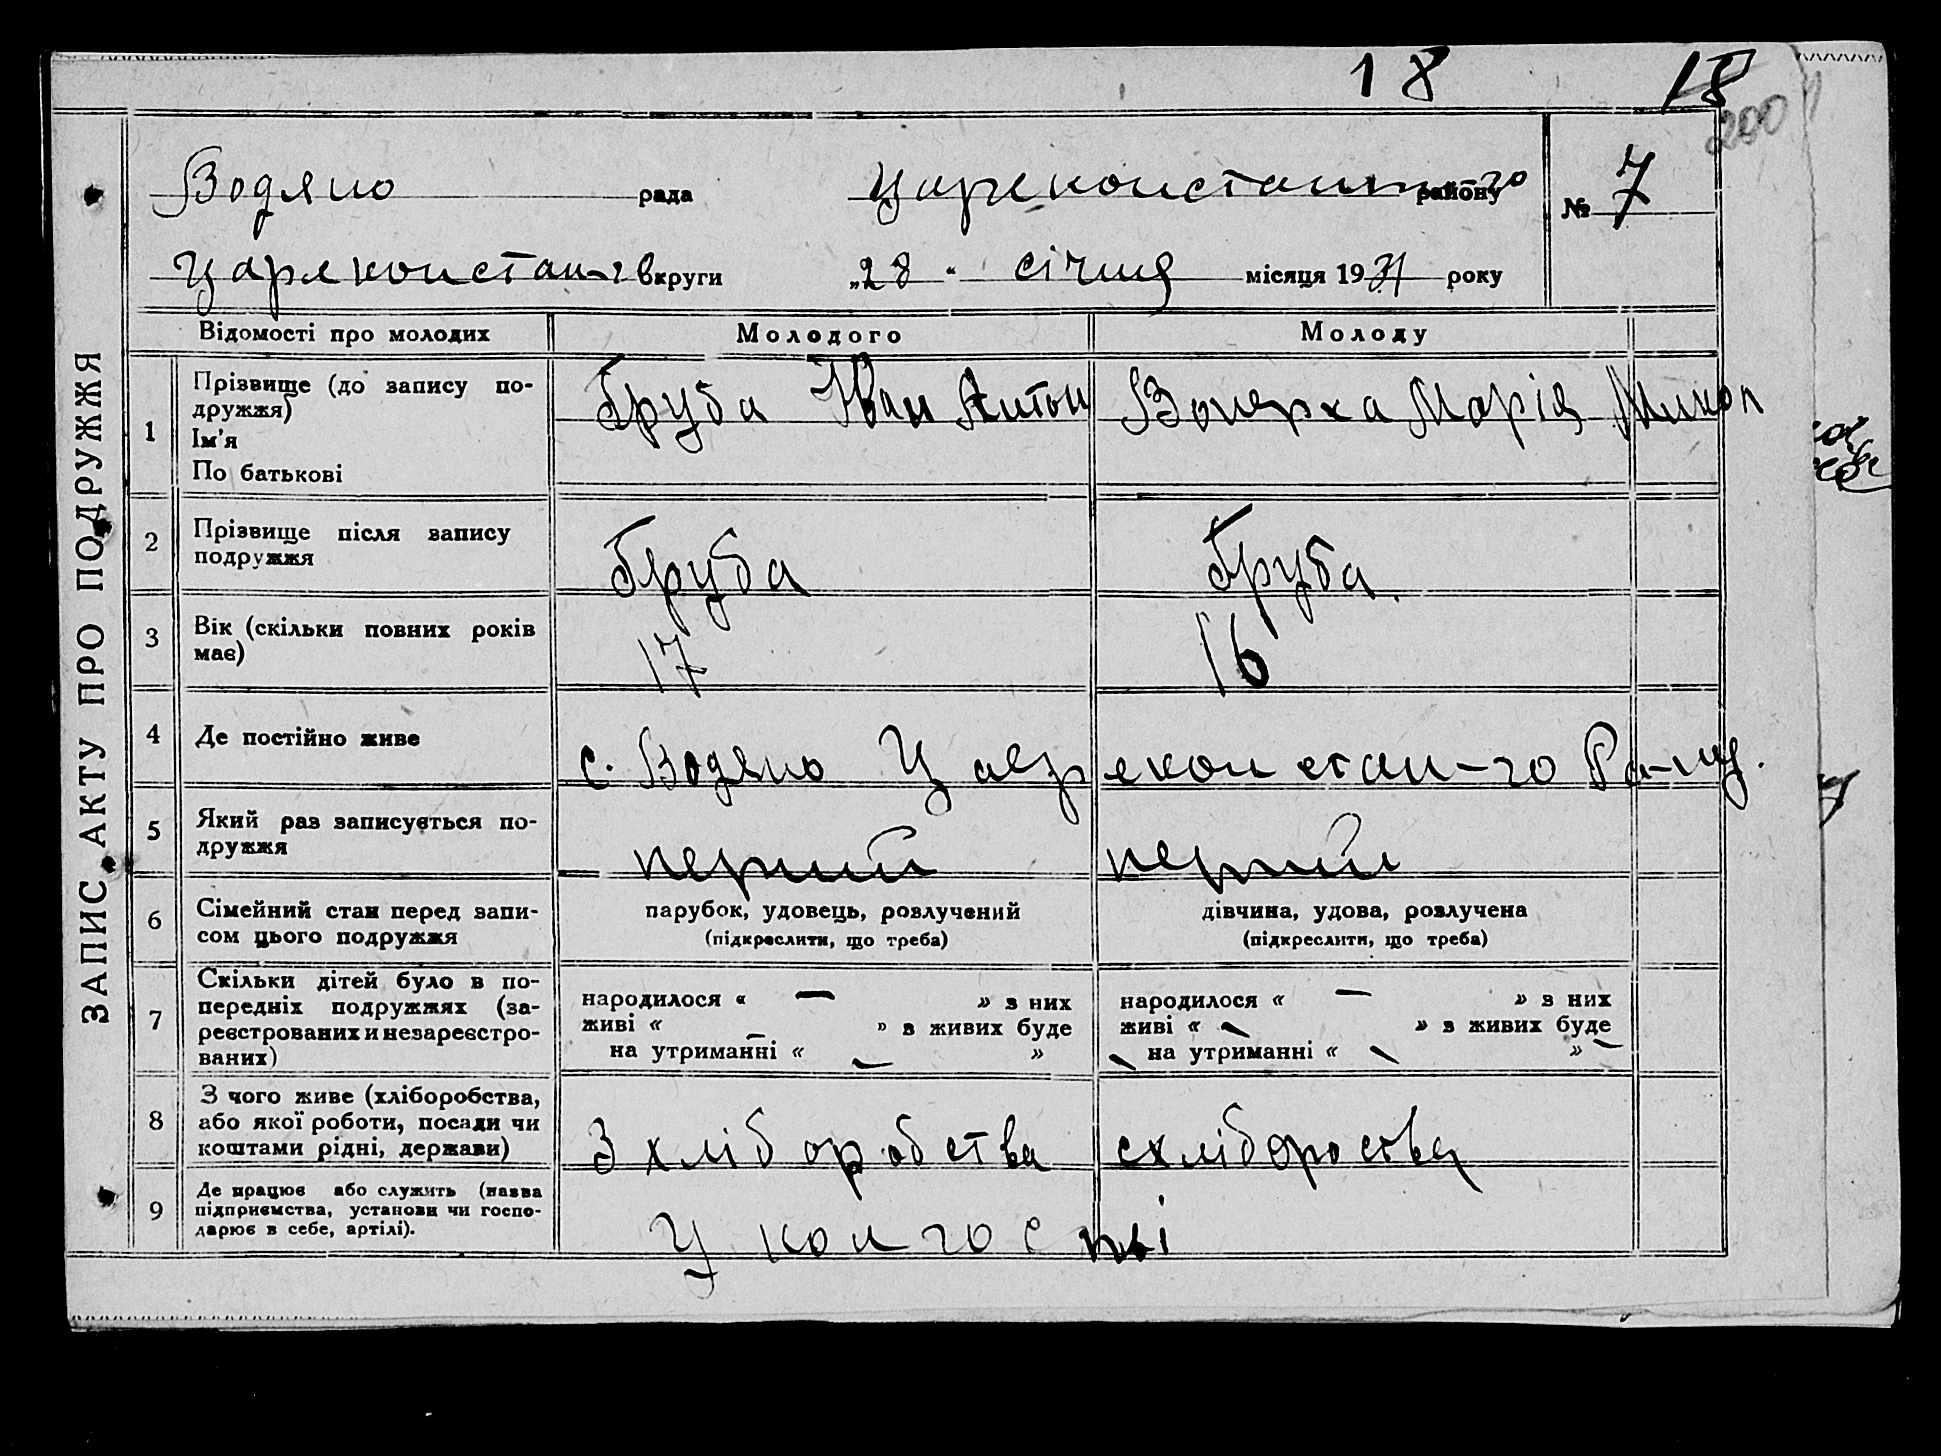 18 18
200
Водяно рада Цареконстант-го району № 7
Цареконстан-го округи „28“ січня місяця 1931 року
ЗАПИС АКТУ ПРО ПОДРУЖЖЯ
Відомості про молодих Молодого Молоду
1 Прізвище (до запису по-
дружжя)
Ім'я
По батькові
Груба Іван Антон Вонярха Марія Микол
2 Прізвище після запису
подружжя
Груба Груба.
3 Вік (скільки повних років
має)
17 16
4 Де постійно живе
с. Водяно Цареконстан-го Ра-ну.
5 Який раз записується по-
дружжя
перший перший
6 Сімейний стан перед запи-
сом цього подружжя
парубок, удовець, розлучений
(підкреслити, що треба)
дівчина, удова, розлучена
(підкреслити, що треба)
7 Скільки дітей було в по-
передніх подружжях (за-
реєстрованих и незареєстро-
ваних)
народилося « — » з них
живі « — » з живих буде
на утриманні « — »
народилося « — » з них
живі « — » з живих буде —
— на утриманні « — »
8 З чого живе (хліборобства,
або якої роботи, посади чи
коштами рідні, держави)
З хліборобства схлібороства
9 Де працює або служить (назва
підприємства, установи чи госпо-
дарює в себе, артілі).
У колгоспі